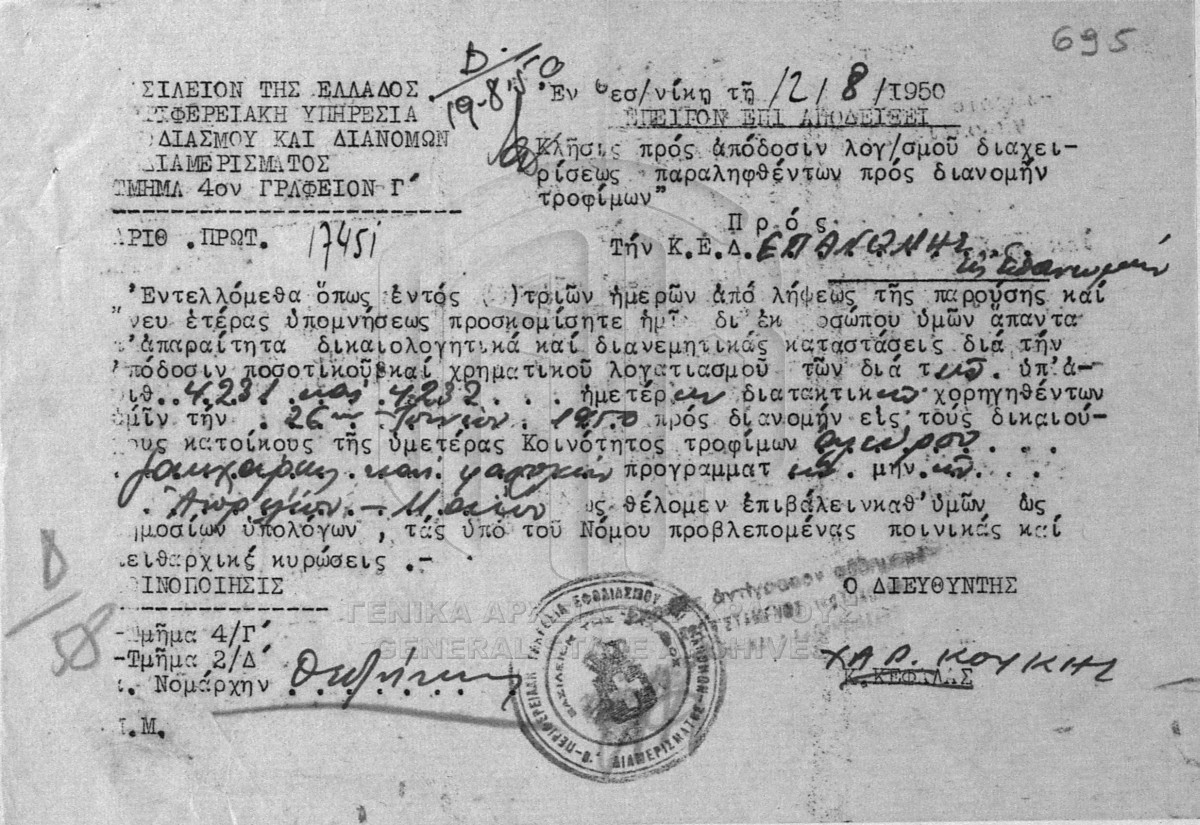 695
19-8-50
ΣΙΛΕΙΟΝ ΤΗΣ ΕΛΛΑΔΟΣ
ΡΙΦΕΡΕΙΑΚΗ ΥΠΗΡΕΣΙΑ
ΟΔΙΑΣΜΟΥ ΚΑΙ ΔΙΑΝΟΜΩΝ
ΔΙΑΜΕΡΙΣΜΑΤΟΣ
ΤΜΗΜΑ 4ον ΓΡΑΦΕΙΟΝ Γ΄
ΑΡΙΘ .ΠΡΩΤ. 17451
Ἐν Θεσ/νίκη τῇ 12/8/1950
ΕΠΕΙΓΟΝ ΕΠΙ ΑΠΟΔΕΙΞΕΙ
Κλῆσις πρός ἀπόδοσιν λογ/σμοῦ διαχει-
ρίσεως παραληφθέντων πρός διανομήν
τροφίμων"
Π ρ ό ς
Τήν Κ.Ε.Δ. ΕΠΑΝΩΜΗΣ
"Ἐντελλόμεθα ὅπως ἐντός ( )τριῶν ἡμερῶν ἀπό λήψεως τῆς παρούσης καί
νευ ἑτέρας ὑπομνήσεως προσκομίσητε ἡμῖ δι ἐκ οσώπου ὑμῶν ἅπαντα
ἀπαραίτητα δικαιολογητικά καί διανεμητικάς καταστάσεις διά τήν
πόδοσιν ποσοτικοῦ καί χρηματικοῦ λογατιασμοῦ τῶν διά τῶν ὑπ'ἀ-
ριθ..4.231 καί 4.232... ἡμετέρων διατακτικῶν χορηγηθέντων
ὑμῖν τήν .26ην Ἰουνίου. 1950 πρός διανομήν εἰς τούς δικαιού-
χους κατοίκους τῆς ὑμετέρας Κοινότητος τροφίμων ἀλεύρου...
ζακχάρεως καί φασολίων προγραμματ μην
. Ἀπριλίου - Μαΐου ως θέλομεν ἐπιβάλεινκαθ'ὑμῶν ὡς
ημοσίων ὑπολόγων , τάς ὑπό τοῦ Νόμου προβλεπομένας ποινικάς καί
ειθαρχικξ κυρώσεις .-
ΟΙΝΟΠΟΙΗΣΙΣ
-Τμῆμα 4/Γ΄
-Τμῆμα 2/Δ΄
κ. Νομάρχην
.Μ.
Ο ΔΙΕΥΘΥΝΤΗΣ
ΧΑΡ. ΚΟΥΚΗΣ
Κ.ΚΕΦΑΛΑΣ
ΠΕΡΙΦΕΡΕΙΑΚΗ ΥΠΗΡΕΣΙΑ ΕΦΟΔΙΑΣΜΟΥ ΚΑΙ ΔΙΑΝΟΜΩΝ Β.' ΔΙΑΜΕΡΙΣΜΑΤΟΣ
ΓΕΝΙΚΑ ΑΡΧΕΙΑ ΤΟΥ ΚΡΑΤΟΥΣ
GENERAL STATE ARCHIVES